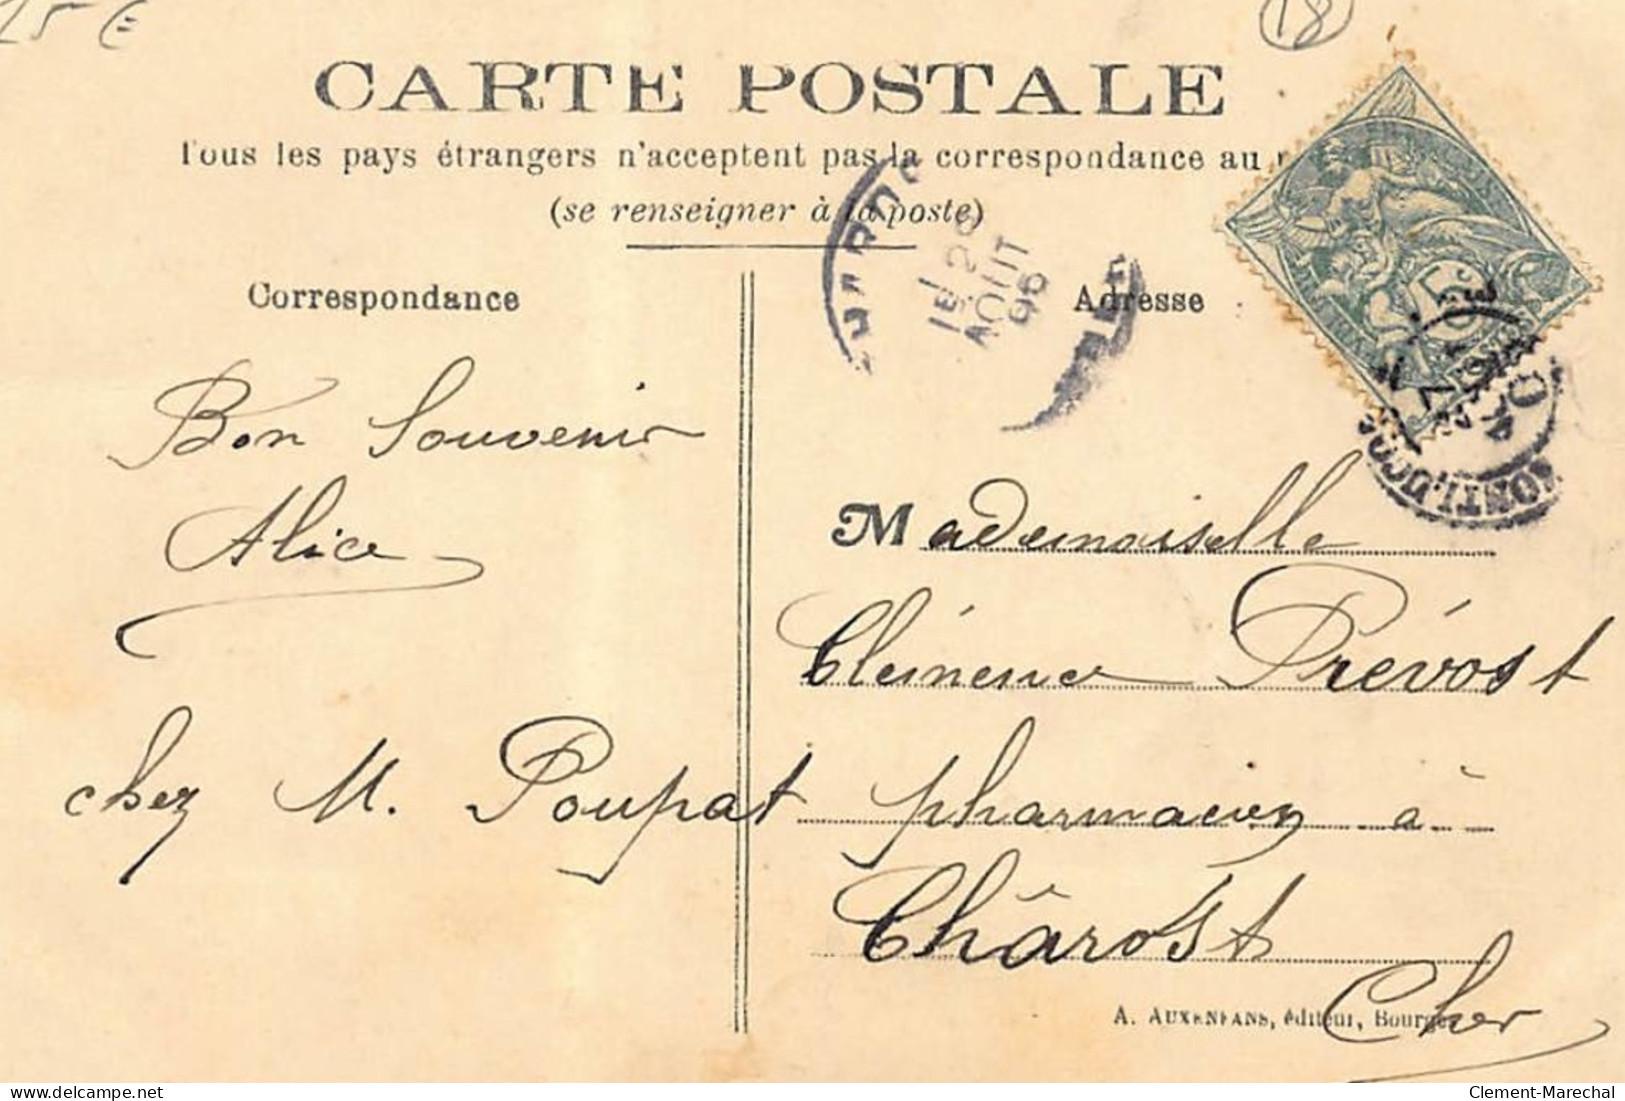 15 €
18
CARTE POSTALE
Tous les pays étrangers n'acceptent pas la correspondance au
(se renseigner à la poste)
Correspondance
Adresse
AOUT
5c
Bon Souvenir
Alice
chez M. Poupat
Mademoiselle
Clémence Prévost
pharmacien à
Chârost
Cher
A. AUXENFANS, éditeur, Bourges
delcampe.net
Clement-Marechal